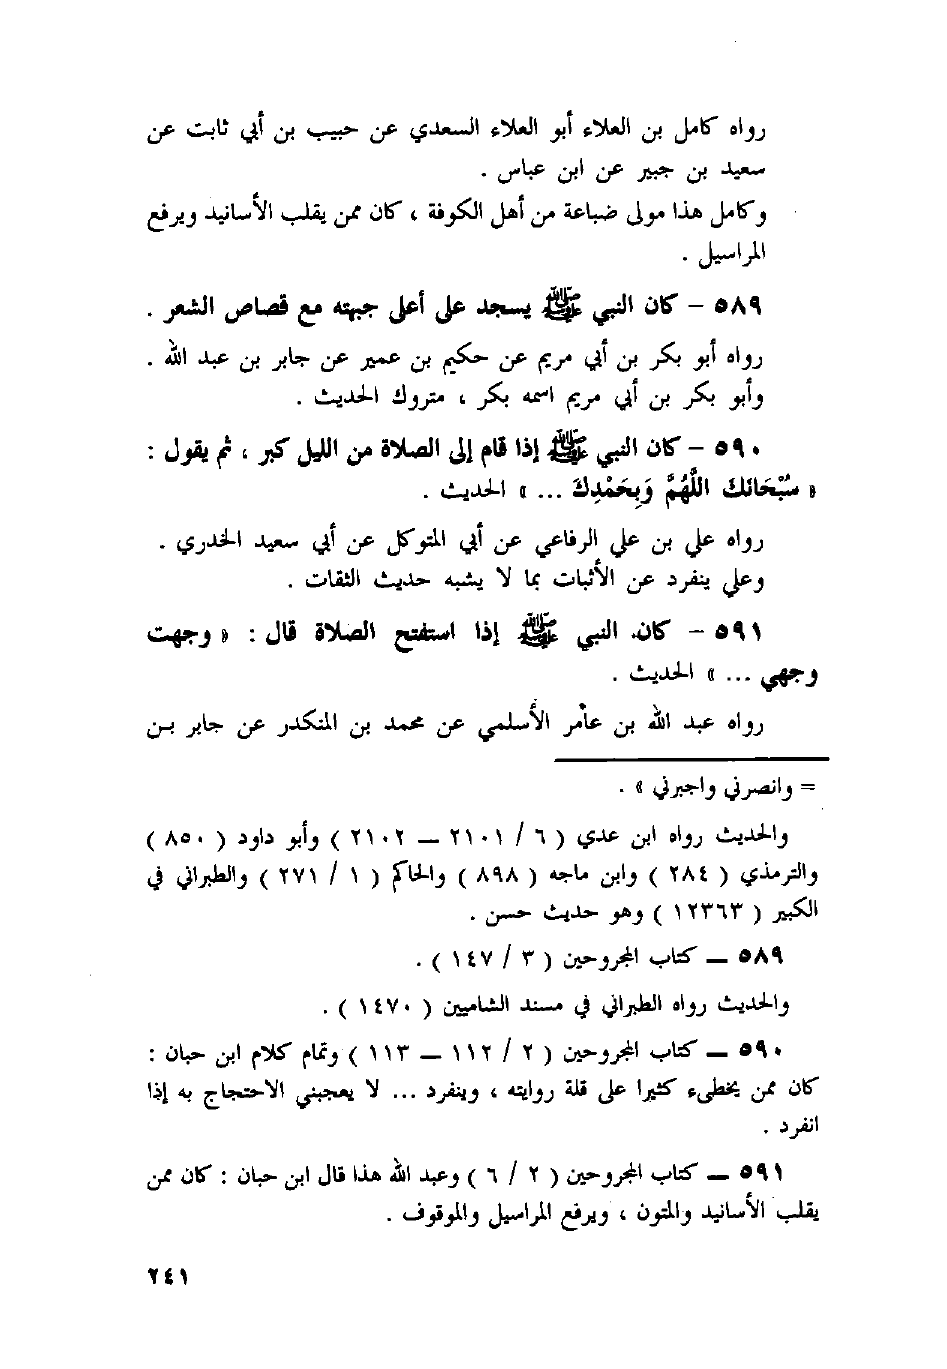 رواه كامل بن العلاء أبو العلاء السعدي عن حبيب بن أبي ثابت عن
سعيد بن جبير عن ابن عباس .
وكامل هذا مولى ضباعة من أهل الكوفة ، كان ممن يقلب الأسانيد ويرفع
المراسيل .
٥٨٩ – كان النبي ﷺ يسجد على أعلى جبهته مع قصاص الشعر .
رواه أبو بكر بن أبي مريم عن حكيم بن عمير عن جابر بن عبد الله .
وأبو بكر بن أبي مريم اسمه بكر ، متروك الحديث .
٥٩٠ – كان النبي ﷺ إذا قام إلى الصلاة من الليل كبر ، ثم يقول :
« سُبْحَانَكَ اللَّهُمَّ وَبِحَمْدِكَ ... » الحديث .
رواه علي بن علي الرفاعي عن أبي المتوكل عن أبي سعيد الخدري .
وعلي ينفرد عن الأثبات بما لا يشبه حديث الثقات .
٥٩١ – كان النبي ﷺ إذا استفتح الصلاة قال : « وجهت
وجهي ... » الحديث .
رواه عبد الله بن عامر الأسلمي عن محمد بن المنكدر عن جابر بن
= وانصرني واجبرني » .
والحديث رواه ابن عدي ( ٦ / ٢١٠١ – ٢١٠٢ ) وأبو داود ( ٨٥٠ )
والترمذي ( ٢٨٤ ) وابن ماجه ( ٨٩٨ ) والحاكم ( ١ / ٢٧١ ) والطبراني في
الكبير ( ١٢٣٦٣ ) وهو حديث حسن .
٥٨٩ – كتاب المجروحين ( ٣ / ١٤٧ ) .
والحديث رواه الطبراني في مسند الشاميين ( ١٤٧٠ ) .
٥٩٠ – كتاب المجروحين ( ٢ / ١١٢ – ١١٣ ) وتمام كلام ابن حبان :
كان ممن يخطىء كثيرا على قلة روايته ، وينفرد ... لا يعجبني الاحتجاج به إذا
انفرد .
٥٩١ – كتاب المجروحين ( ٢ / ٦ ) وعبد الله هذا قال ابن حبان : كان ممن
يقلب الأسانيد والمتون ، ويرفع المراسيل والموقوف .
٢٤١